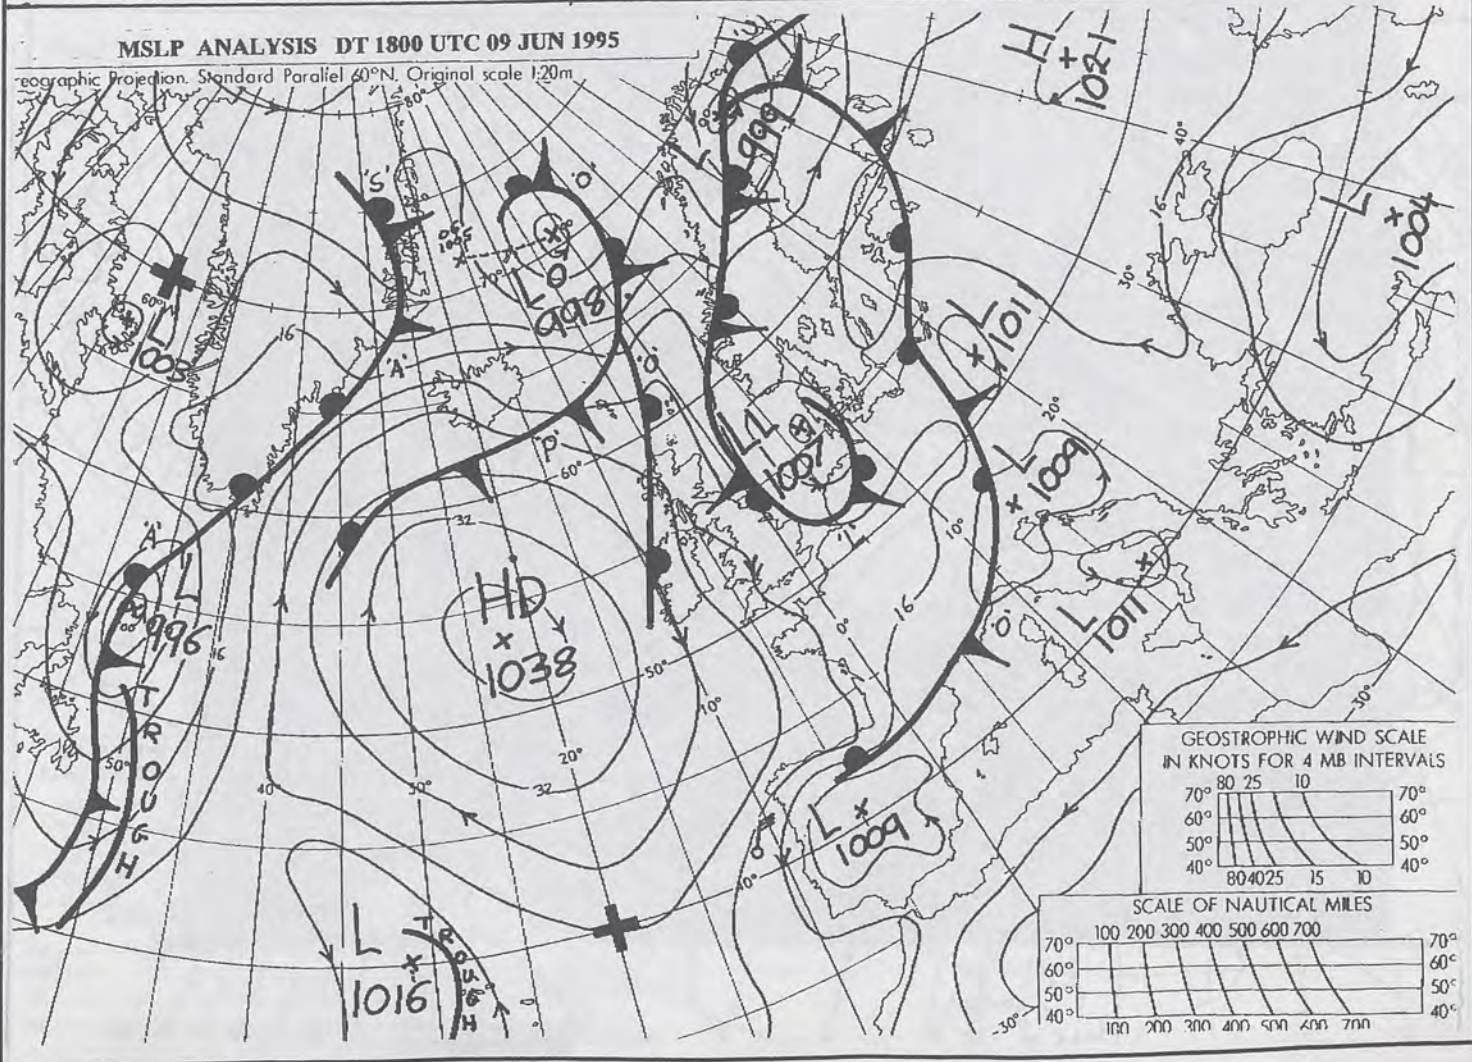 MSLP ANALYSIS DT 1800 UTC 09 JUN 1995
eographic Projection. Standard Parallel 60°N. Original scale 1:20m
80°
'U'
H
1021
40°
'S'
'O'
L
999
16
L
1004
06
1005
70°
L O
998
60°
L
1003
30°
16
'A'
'O'
L
1011
20°
'P'
60°
L1
1007
L
1009
32
10°
'L'
'A'
L
996
HD
1038
16
16
0°
'O'
L
1011
50°
10°
30°
TROUGH
50°
40°
30°
20°
32
L
1009
10°
L
1016
TROUGH
GEOSTROPHIC WIND SCALE
IN KNOTS FOR 4 MB INTERVALS
80 25 10
70° 70°
60° 60°
50° 50°
40° 40°
80 40 25 15 10
SCALE OF NAUTICAL MILES
100 200 300 400 500 600 700
70° 70°
60° 60°
50° 50°
40° 40°
100 200 300 400 500 600 700
30°